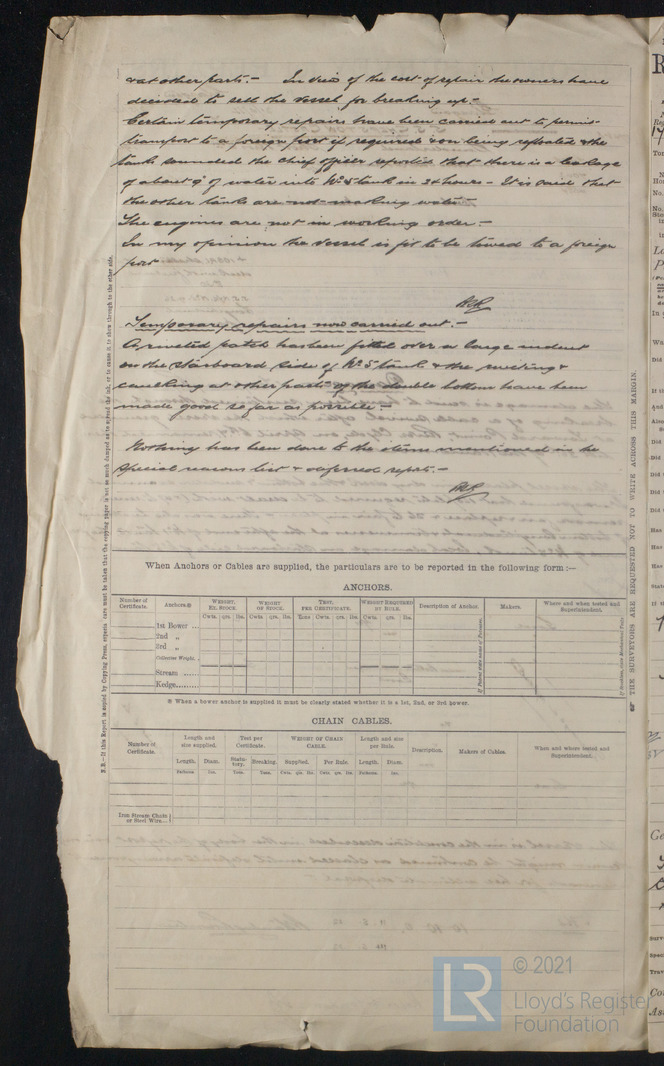 & at other parts. - In view of the cost of repair the owners have
decided to sell the vessel for breaking up. -
Certain temporary repairs have been carried out to permit
transport to a foreign port if required & on being refloated & the
tanks sounded the chief officer reported that there is a leakage
of about 9" of water into No 5 tank in 24 hours - It is said that
the other tanks are not making water. -
The engines are not in working order. -
In my opinion the vessel is fit to be towed to a foreign
port
Temporary repairs now carried out. -
A riveted patch has been fitted over a large indent
on the starboard side of No 5 tank & the riveting &
caulking at other parts of the double bottom have been
made good so far as possible. -
Nothing has been done to the items mentioned in the
special reasons list & deferred report. -
When Anchors or Cables are supplied, the particulars are to be reported in the following form :—
ANCHORS.
Number of Certificate. Anchors.※ WEIGHT. EX. STOCK. WEIGHT OF STOCK. TEST, PER CERTIFICATE. WEIGHT REQUIRED BY RULE. Description of Anchor. Makers. Where and when tested and Superintendent.
Cwts. qrs. lbs. Cwts. qrs. lbs. Tons Cwts. qrs. lbs. Cwts. qrs. lbs.
1st Bower ...
2nd "
3rd "
Collective Weight.
Stream
Kedge
※ When a bower anchor is supplied it must be clearly stated whether it is a 1st, 2nd, or 3rd bower.
CHAIN CABLES.
Number of Certificate. Length and size supplied. Test per Certificate. WEIGHT OF CHAIN CABLE. Length and size per Rule. Description. Makers of Cables. When and where tested and Superintendent.
Length. Diam. Statutory. Breaking. Supplied. Per Rule. Length. Diam.
Fathoms. Ins. Tons. Tons. Cwts. qrs. lbs. Cwts. qrs. lbs. Fathoms. Ins.
Iron Stream Chain
or Steel Wire...
THE SURVEYORS ARE REQUESTED NOT TO WRITE ACROSS THIS MARGIN.
LR
© 2021
Lloyd's Register
Foundation